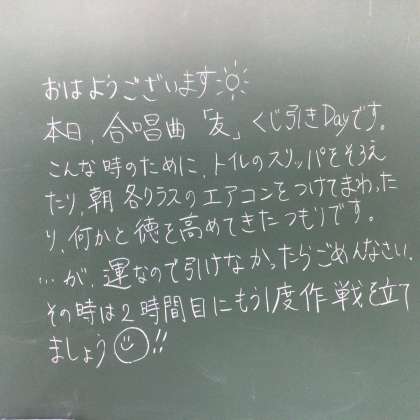 おはようございます☀
本日、合唱曲「友」くじ引きDayです。
こんな時のために、トイレのスリッパをそろえ
たり、朝各クラスのエアコンをつけてまわった
り、何かと徳を高めてきたつもりです。
…が、運なので引けなかったらごめんなさい。
その時は2時間目にもう1度作戦を立て
ましょう☺!!